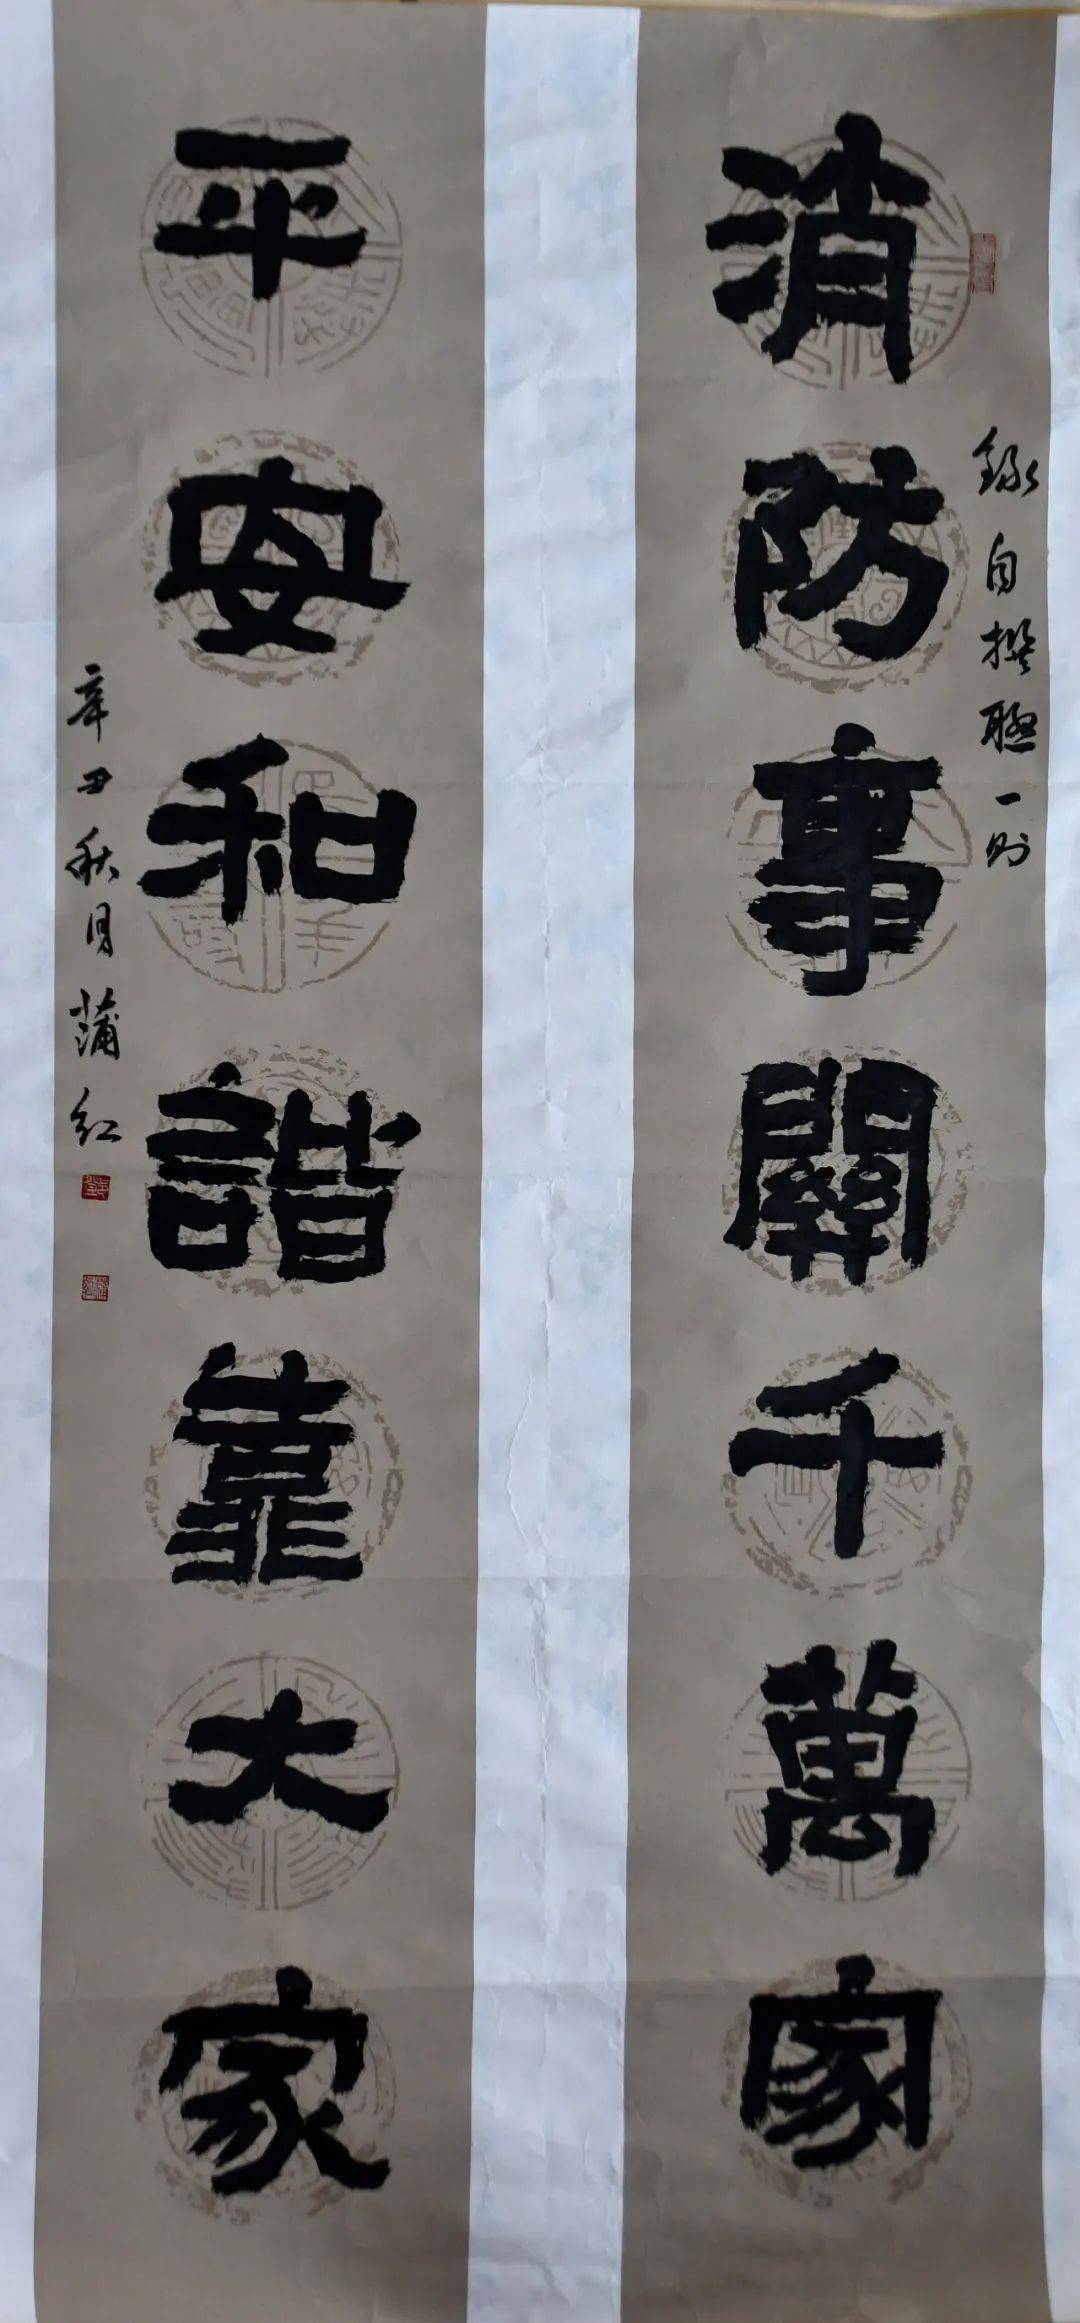 消防事關千萬家
錄自撰聯一則
平安和諧靠大家
辛丑秋月蒲紅